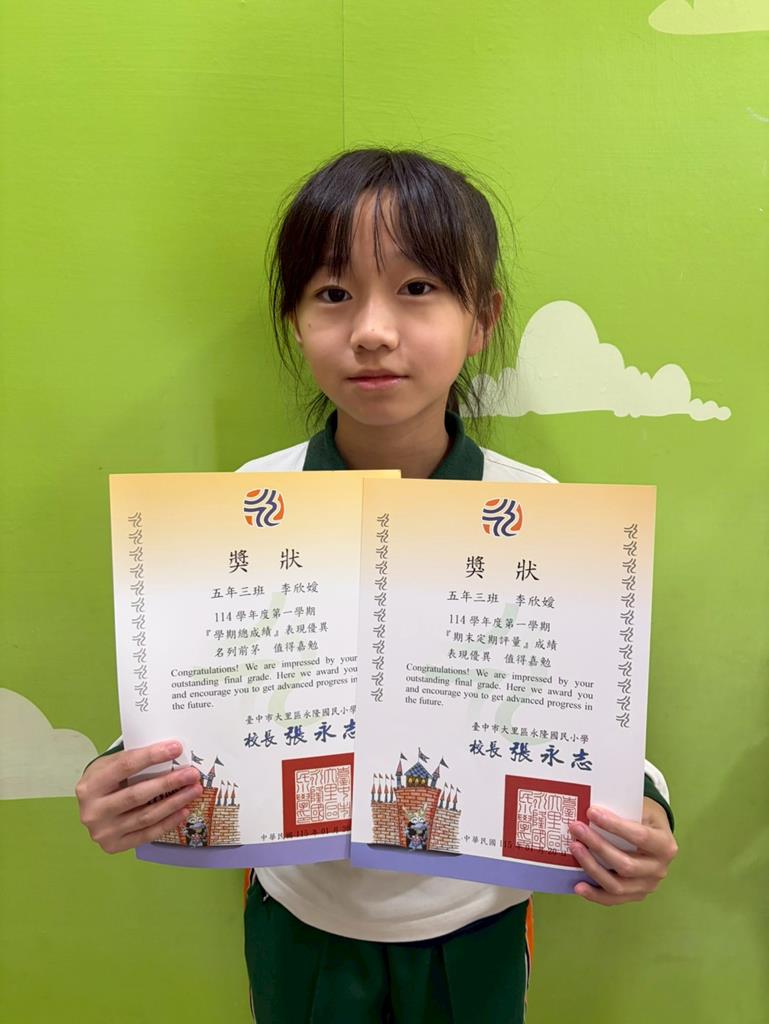 獎 狀
五年三班 李欣嬡
114 學年度第一學期
『學期總成績』表現優異
名列前茅 值得嘉勉
Congratulations! We are impressed by your
outstanding final grade. Here we award you
and encourage you to get advanced progress in
the future.
臺中市大里區永隆國民小學
校長 張永志
中華民國 115 年 01 月 20
獎 狀
五年三班 李欣嬡
114 學年度第一學期
『期末定期評量』成績
表現優異 值得嘉勉
Congratulations! We are impressed by your
outstanding final grade. Here we award you
and encourage you to get advanced progress in
the future.
臺中市大里區永隆國民小學
校長 張永志
中華民國 115 年 01 月 20 日